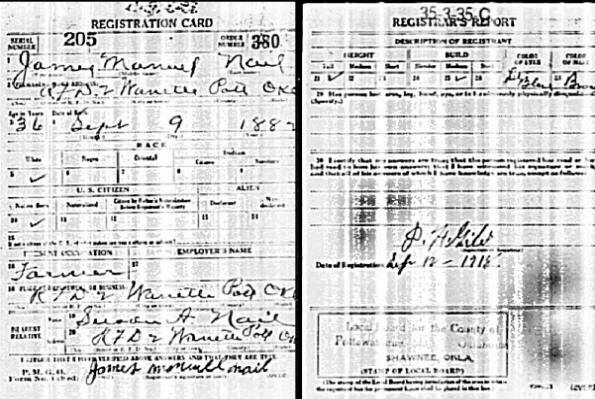 REGISTRATION CARD
SERIAL NUMBER 205 ORDER NUMBER 380
James Nail
R F D 2 Wanette Pott Okl
Age in Years Date of Birth
36 Sept 9 1882
RACE
White Negro Oriental Indian
Citizen
5 ✓ 6 7 8 9
U. S. CITIZEN ALIEN
Native Born Naturalized Citizen by Father's Naturalization Before Registrant's Majority Declarant Non-declarant
10 ✓ 11 12 13 14
15
PRESENT OCCUPATION EMPLOYER'S NAME
16 Farmer 17
18 PLACE OF EMPLOYMENT OR BUSINESS
R F D 2 Wanette Pott Okl
NEAREST RELATIVE Name 19 Susan A. Nail
Address 20 R F D 2 Wanette Pott Ok
I AFFIRM THAT I HAVE VERIFIED ABOVE ANSWERS AND THAT THEY ARE TRUE
P. M. G. O.
Form No. 1 (Red) James Nail
35-3-35 C
REGISTRAR'S REPORT
DESCRIPTION OF REGISTRANT
HEIGHT BUILD COLOR OF EYES COLOR OF HAIR
Tall Medium Short Slender Medium Stout
21 ✓ 22 23 24 25 ✓ 26 27 Blue 28
29 Has person lost arm, leg, hand, eye, or is he obviously physically disqualified?
(Specify.)
30 I certify that my answers are true; that the person registered has read or has
had read to him his own answers; that I have witnessed his signature or mark,
and that all of his answers of which I have knowledge are true, except as follows:
Date of Registration Sep 12 - 1918
Local Board for the County of
Pottawatomie
Oklahoma
SHAWNEE, OKLA.
(STAMP OF LOCAL BOARD)
(The stamp of the Local Board having jurisdiction of the area in which
the registrant has his permanent home shall be placed in this box.)